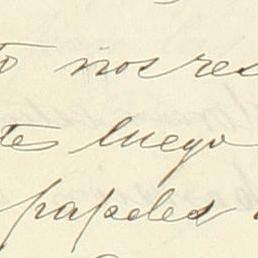 nos res
luego
papeles